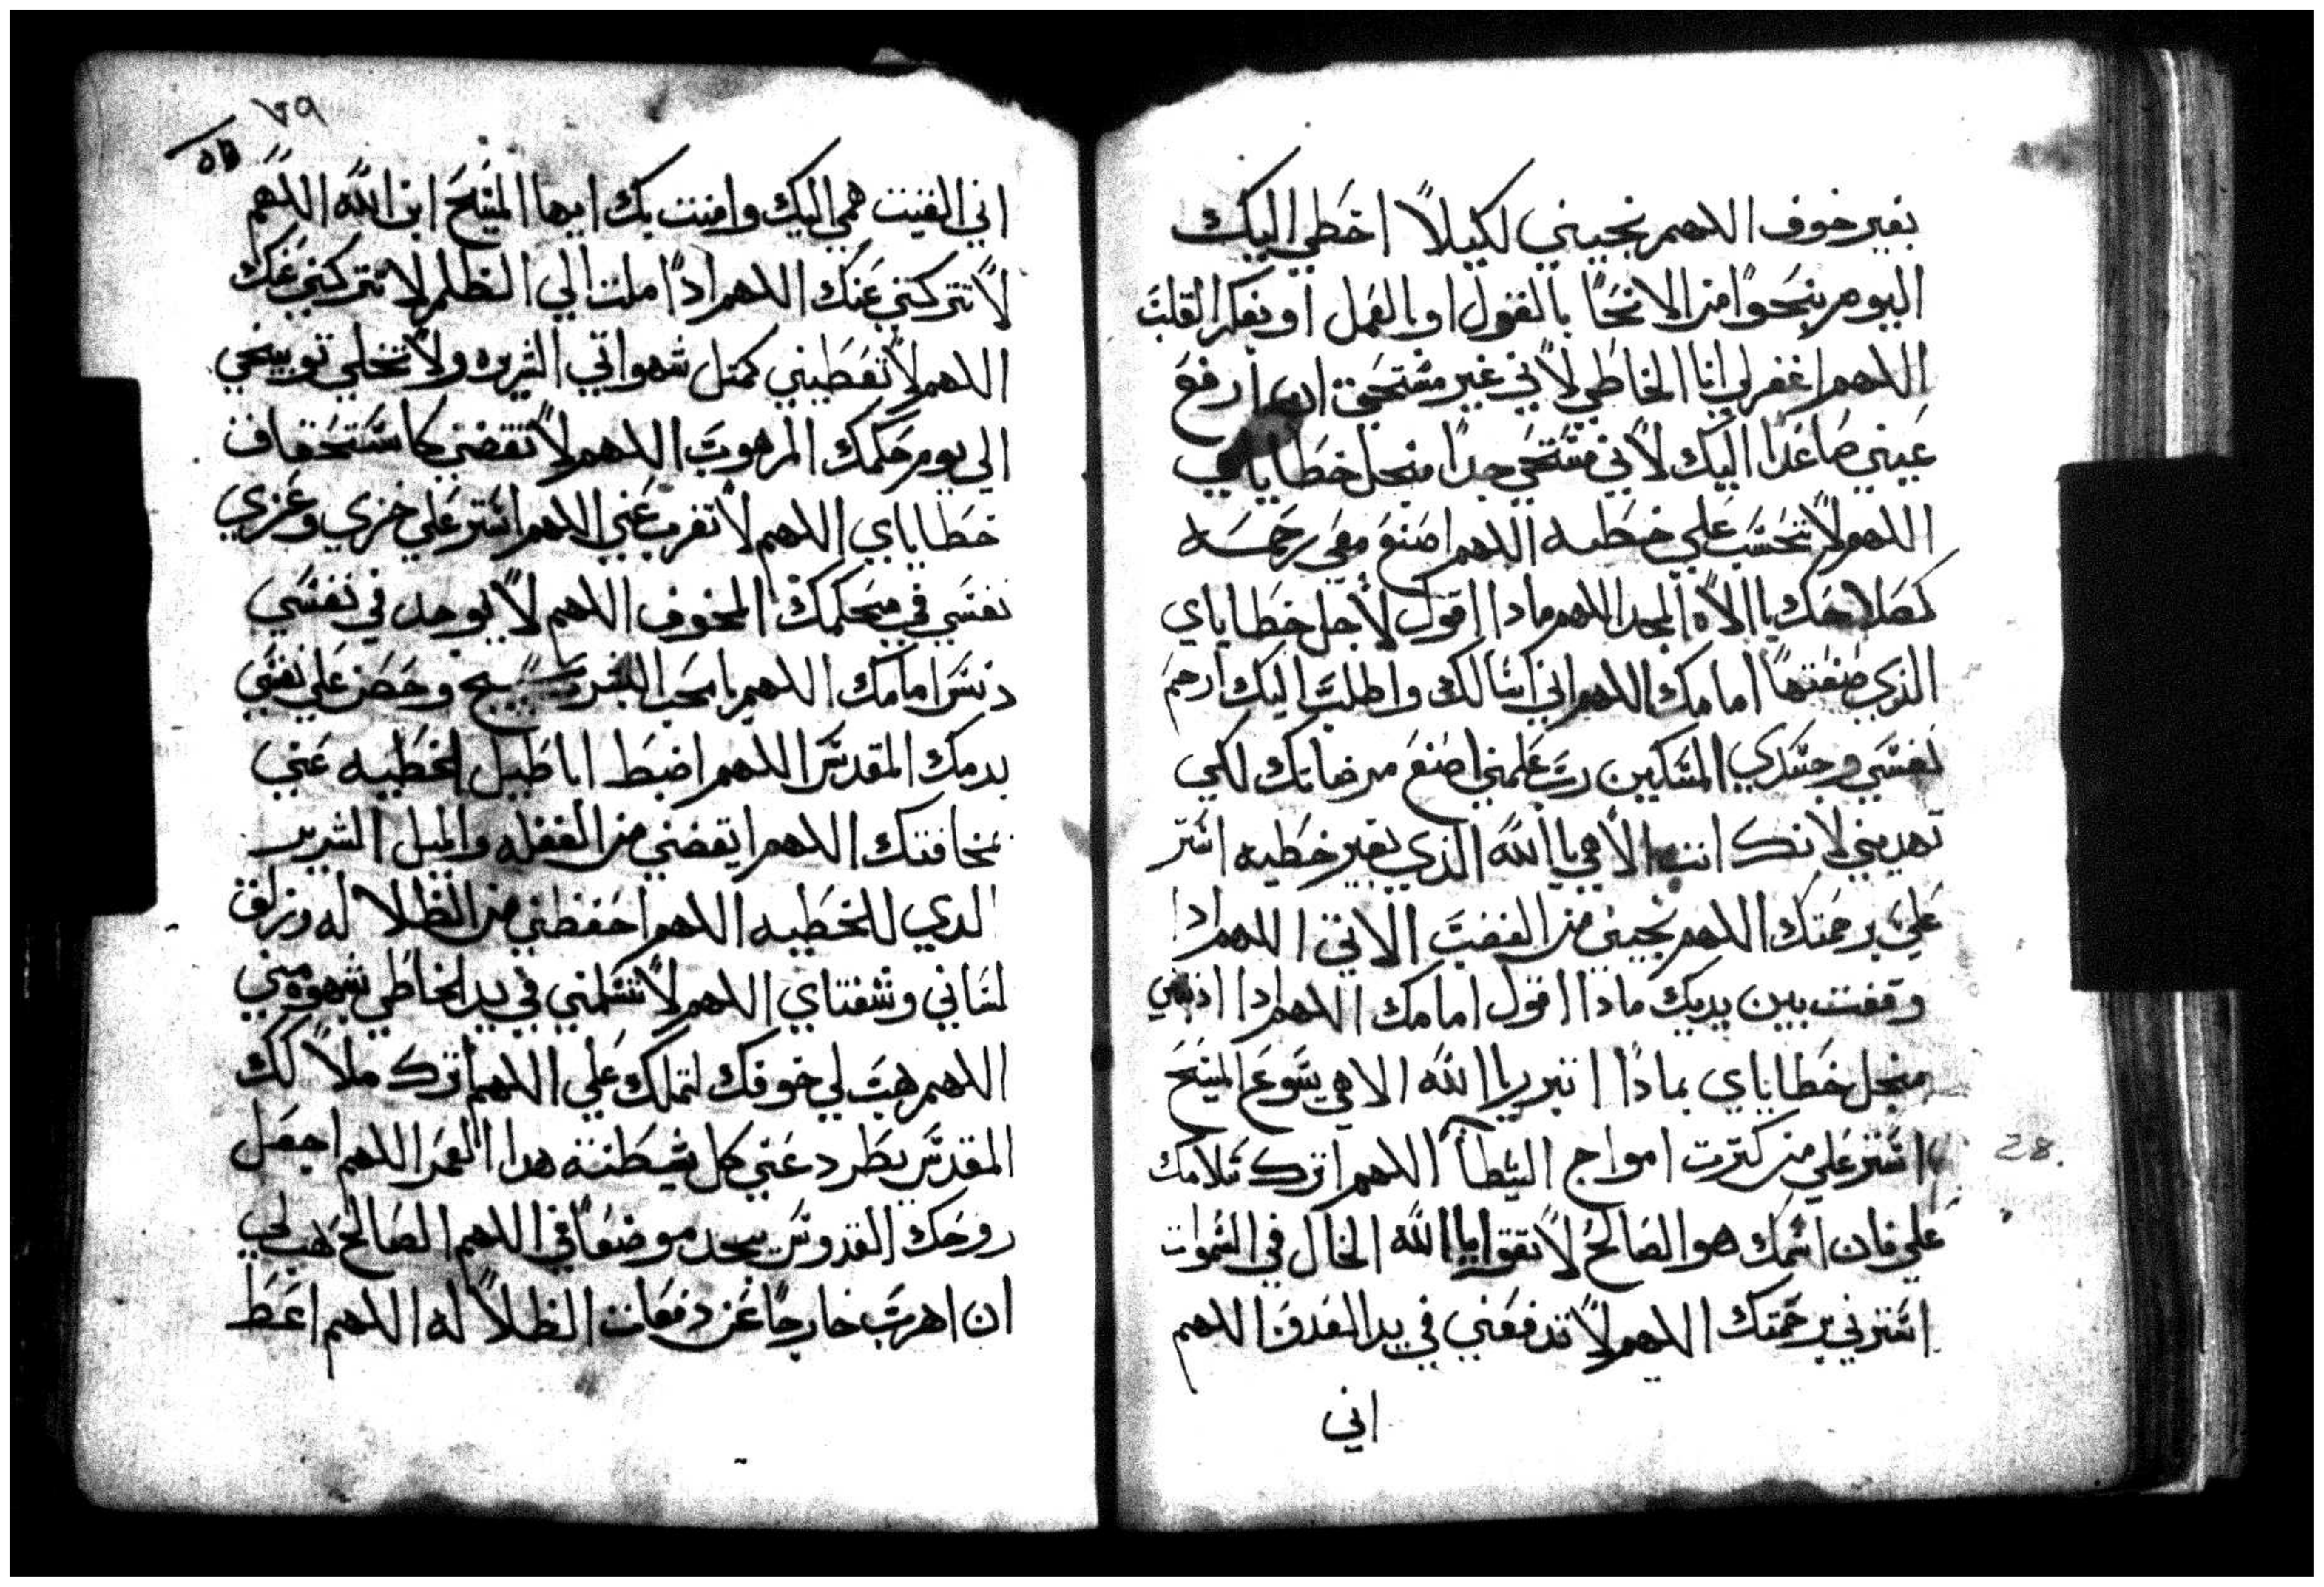 بغير خوف اللاهم نجيني لكيلاً اخطي اليك
اليوم بنحوًا من الانحًا بالقول او بالعمل او بفكر القلب
اللاهم اغفر لي انا الخاطي لاًني غير مستحق ان ارفع
عيني صاعدًا اليك لاًني مستحي جدًا منجل خطاياي
اللاهم لاً تحسب علي خطيه اللاهم اصنع معي رحمه
كصلاحك يا الاًه المجد اللاهم ماذا اقول لاًجل خطاياي
الذي صنعتها امامك اللاهم اني اسالك واطلب اليك ارحم
نفسي وجسدي المسكين رب علمني اصنع مرضاتك لكي
تهديني لاًنك انت الاًهي يا الله الذي بغير خطيه استر
علي برحمتك اللاهم نجيني من الغضب الاتي اللاهم ادا
وقفت بين يديك ماذا اقول امامك اللاهم ادا
منجل خطاياي بماذا اتبرر يا الله الاهي يسوع المسيح
استر علي من كترت امواج الشيطاًن اللاهم اترك سلامك
علي فان اسمك هو الصالح لاً يا الله الحال في السموات
استرني برحمتك اللاهم لاً تدفعني في يد العدو اللاهم
اني
٧٩
اني القيت همي اليك وامنت بك ايها المسيح ابن الله اللاهم
لاً تتركني عنك اللاهم اذًا ملت الي الظلم لا تتركني عنك
اللاهم لاً تعطيني كمتل شهواتي الشريره ولاً تخلي توبيخي
الي يوم حكمك المرهوب اللاهم لاً تقضي كاستحقاق
خطاياي اللاهم لاً تغرب عني اللاهم استر علي خزي وعري
نفسي في محكمك المخوف اللاهم لاً يوجد في نفسي
دنس امامك اللاهم يا محب البشر سيج وحصن علي نفسي
بدمك المقدس اللاهم اضبط اباطيل الخطيه عني
بمخافتك اللاهم ايقضني من الغفله والميل الشرير
الدي للخطيه اللاهم احفظني من الظلاله وزلق
لساني وشفتاي اللاهم لاً تسلمني في يد الخاطي بشهوه مني
اللاهم هب لي خوفك لتملك علي اللاهم اترك ملاًكك
المقدس يطرد عني كل شيطنة هدا العمر اللاهم اجعل
روحك القدوس يجد موضعاً في اللاهم الصالح هب لي
ان اهرب خارجًا عن دفعات الظلاًله اللاهم اعط
28.